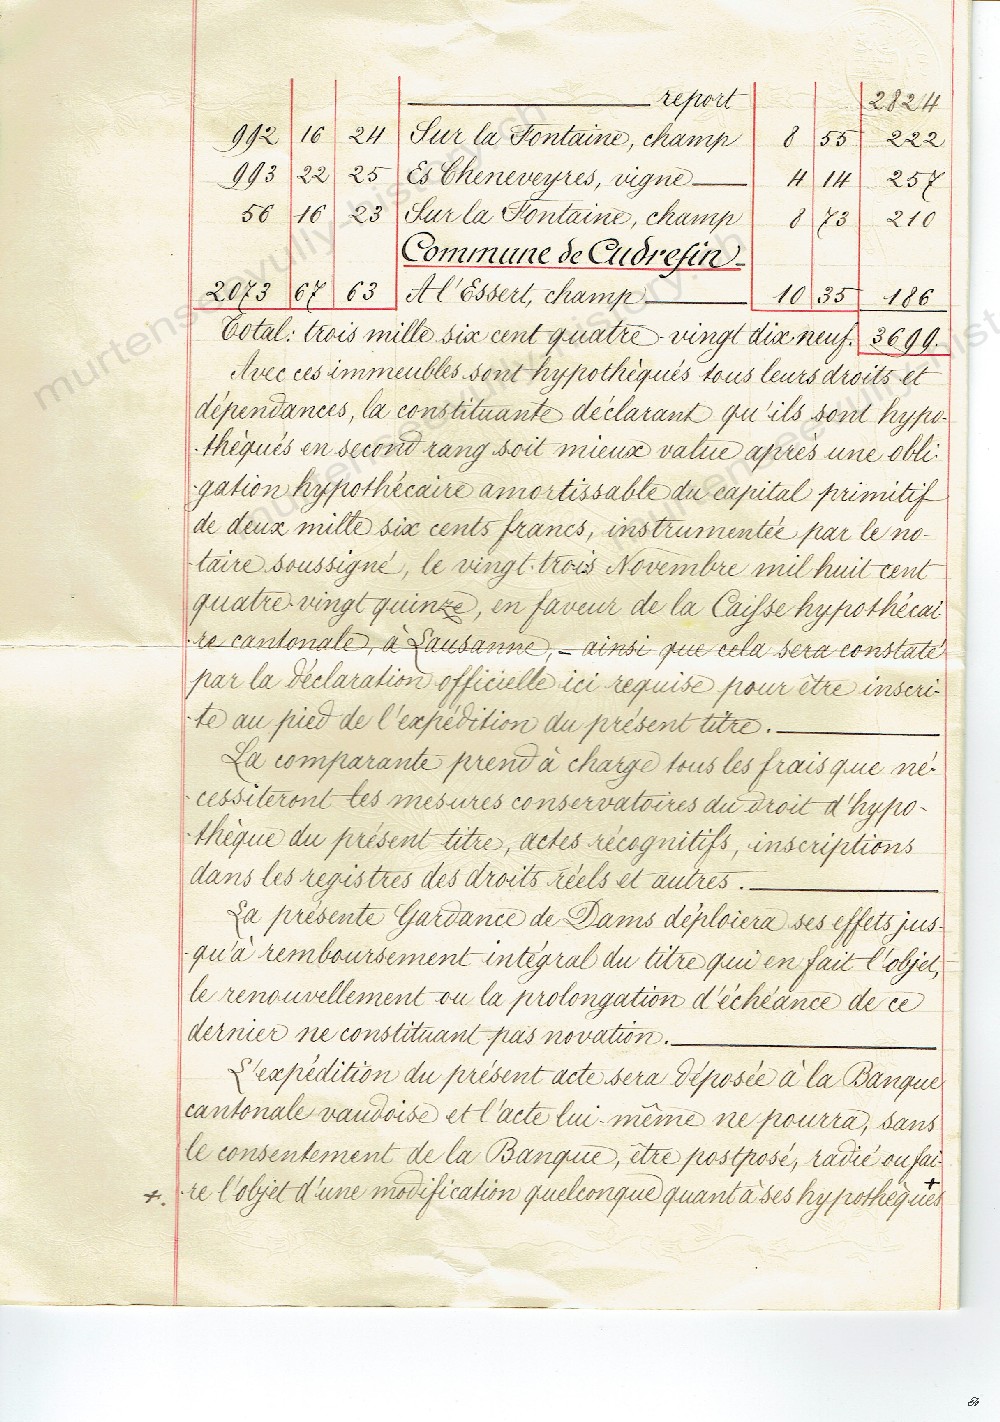 report 2824
992 16 24 Sur la Fontaine, champ 8 55 222
993 22 25 Es Cheneveyres, vigne 4 14 257
56 16 23 Sur la Fontaine, champ 8 73 210
Commune de Cudrefin
2073 67 63 A l'Essert, champ 10 35 186
Total: trois mille six cent quatre-vingt dix-neuf. 3699.
Avec ces immeubles sont hypothéqués tous leurs droits et
dépendances, la constituante déclarant qu'ils sont hypo-
-théqués en second rang soit mieux value après une obli-
-gation hypothécaire amortissable du capital primitif
de deux mille six cents francs, instrumentée par le no-
-taire soussigné, le vingt-trois Novembre mil huit cent
quatre-vingt quinze, en faveur de la Caisse hypothécai
-re cantonale, à Lausanne, - ainsi que cela sera constaté
par la déclaration officielle ici requise pour être inscri-
-te au pied de l'expédition du présent titre.
La comparante prend à charge tous les frais que né-
-cessiteront les mesures conservatoires du droit d'hypo-
-thèque du présent titre, actes récognitifs, inscriptions
dans les registres des droits réels et autres.
La présente Gardance de Dams déploiera ses effets jus-
-qu'à remboursement intégral du titre qui en fait l'objet,
le renouvellement ou la prolongation d'échéance de ce
dernier ne constituant pas novation.
L'expédition du présent acte sera déposée à la Banque
cantonale vaudoise et l'acte lui-même ne pourra, sans
le consentement de la Banque, être postposé, radié ou fai-
+. -re l'objet d'une modification quelconque quant à ses hypothèques +
murtenseevully-history.ch
murtenseevully-history.ch
murtenseevully-history.ch